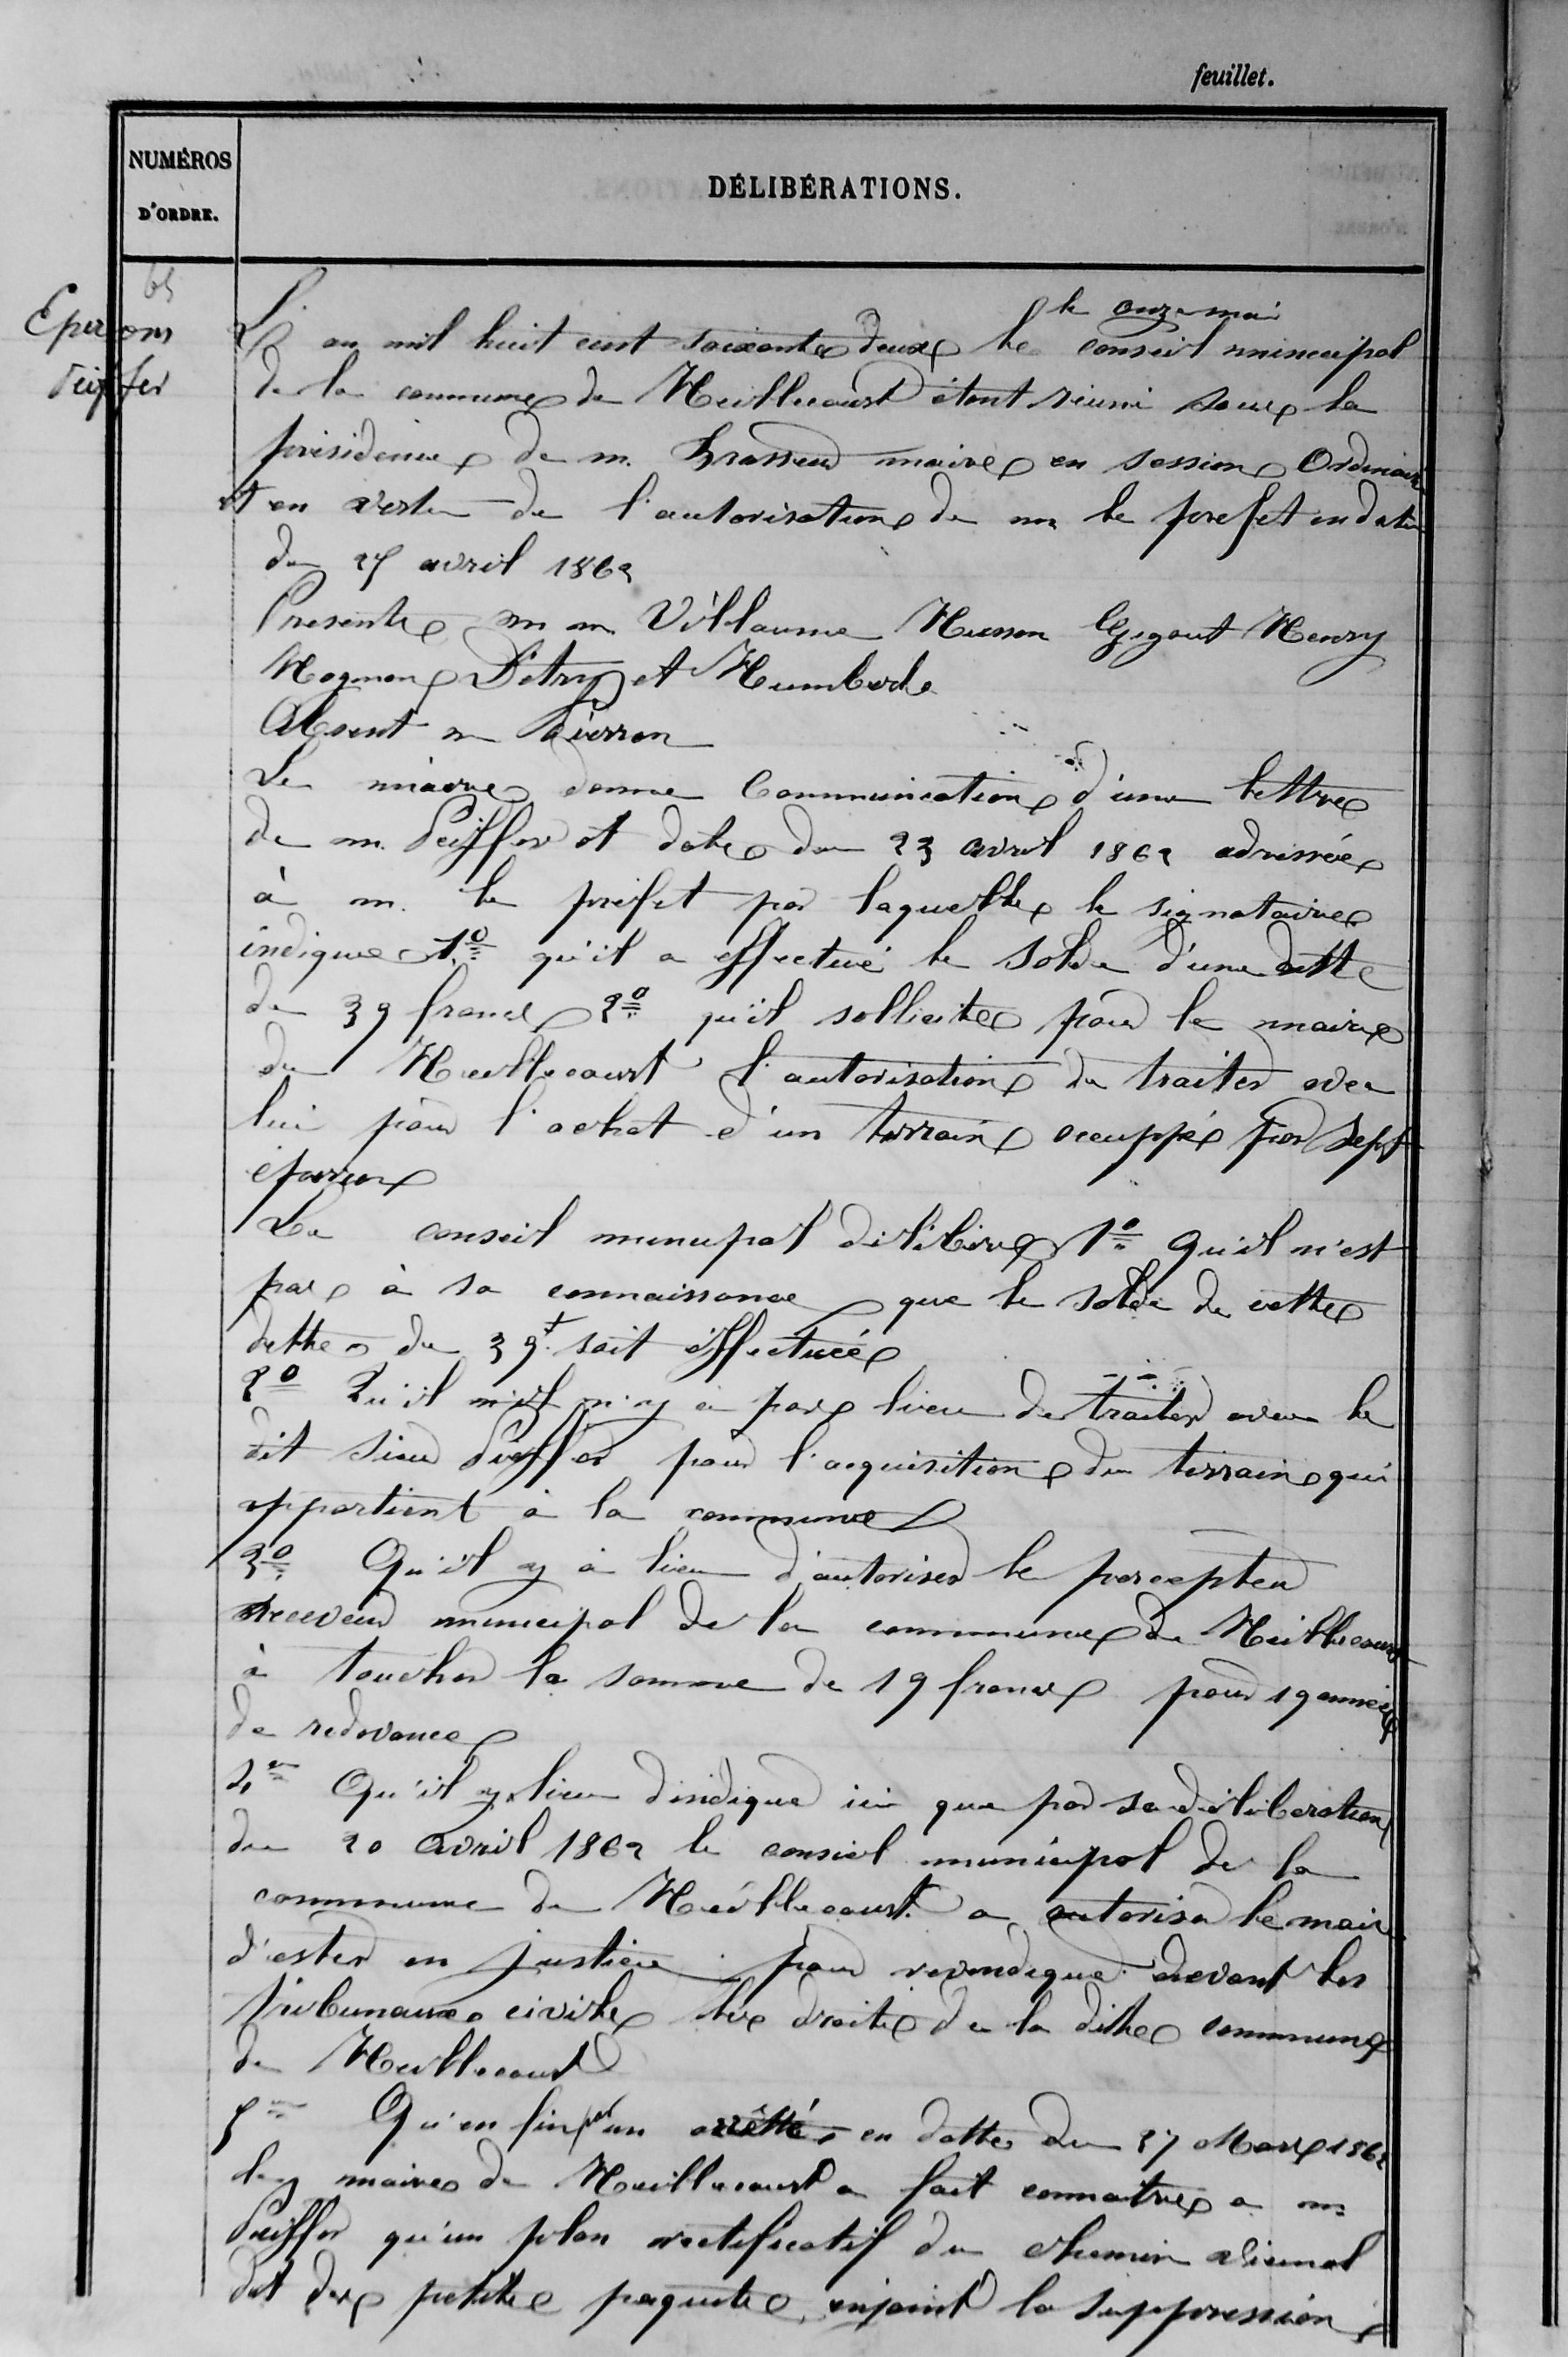 feuillet.
NUMÉROS
D'ORDRE.
DÉLIBÉRATIONS.
65
Eperons
Peiffer
le onze mai
L'an mil huit cent soixante deux le conseil municipal
de la commune de Heillecourt étant réuni sous la
présidence de m. Brasseur maire en session Ordinaire
et en vertu de l'autorisation de m le prefet en date
du 25 avril 1862
Presents m m. Villaume Husson Gegout Henry
Détry et Humbert
Absent m Pierron
Le maire donne Communication d'une lettre
de m. Peiffer et date du 23 avril 1862 adressée
à m. le préfet par laquelle le signataire
indique 1o qu'il a effectué le solde d'une dette
de 39 francs 2o qu'il sollicite pour le maire
de Heillecourt l'autorisation de traiter avec
lui pour l'achat d'un terrain occuppé par sept
éperons
Le conseil municipal délibère 1o Qu'il n'est
pas à sa connaissance que le solde de cette
dette de 39f soit effectuée
2o Qu'il n'y a pas lieu de traiter avec le
dit sieur Peiffer pour l'acquisition du terrain qui
appartient à la commune
3o Qu'il y a lieu d'autoriser le percepteur
receveur municipal de la commune de Heillecourt
à toucher la somme de 19 francs pour 19 années
de redevance
4m Qu'il y a lieu d'indiqué ici que par sa déliberation
du 20 Avril 1862 le conseil municipal de la
commune de Heillecourt a autorisé le maire
d'ester en justice pour revendiqué devant les
tribunaux civils les droits de la dite commune
de Heillecourt
5m Qu'en fin par un arrêtté en datte du 27 Mars 1862
le maire de Heillecourt a fait connaitre a m
Peiffer qu'un plan rectificatif du chemin vicinal
dit des petits paquis enjoint la suppression